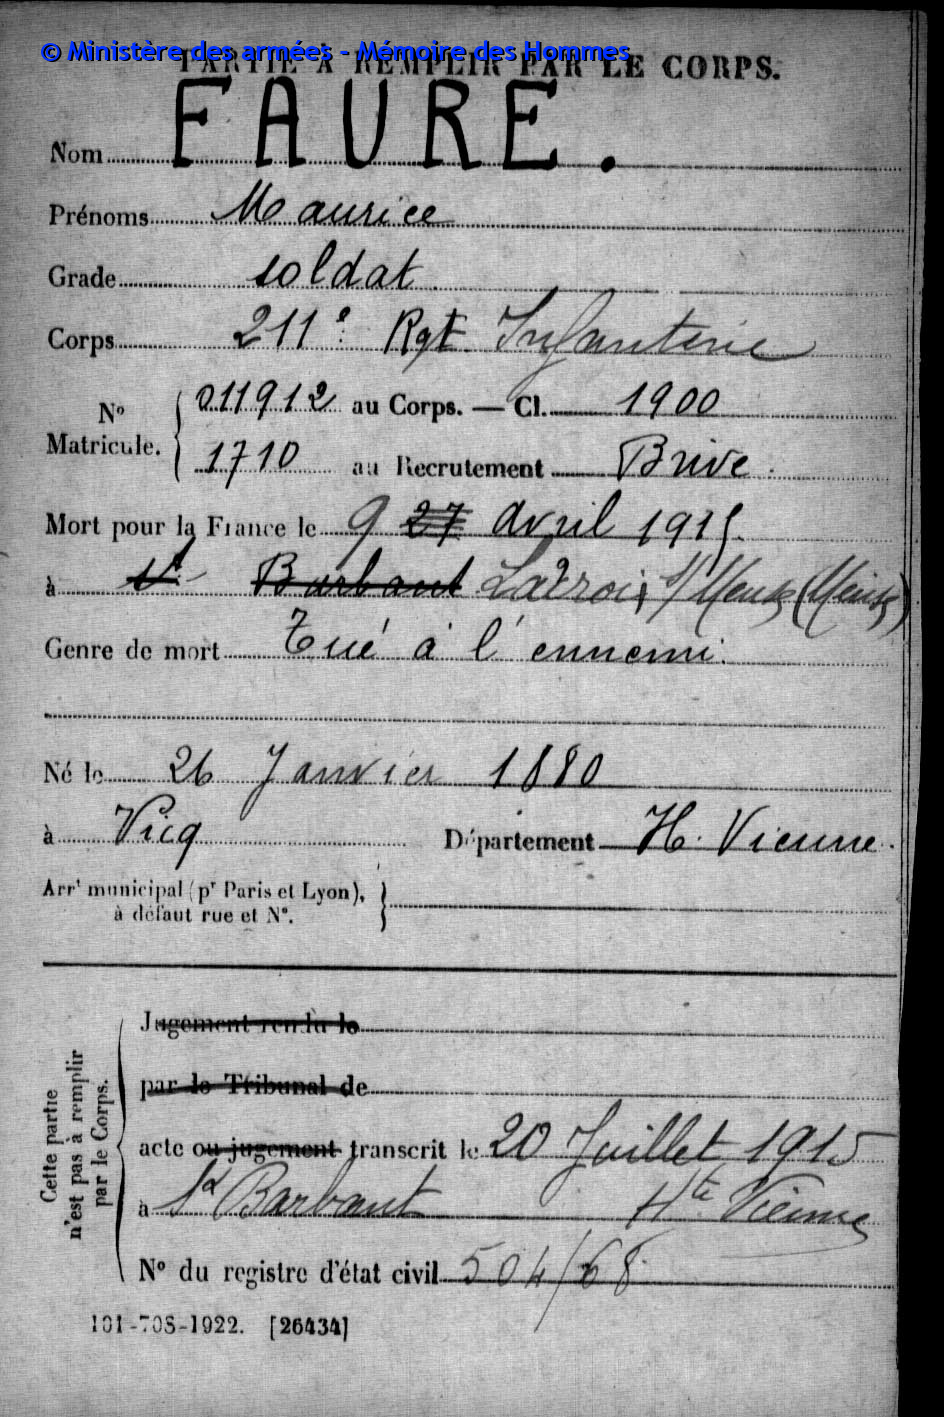 © Ministère des armées - Mémoire des Hommes
PARTIE À REMPLIR PAR LE CORPS.
Nom FAURE.
Prénoms Maurice
Grade soldat.
Corps 211e Rgt Infanterie
No Matricule. { 011912 au Corps. — Cl. 1900
1710 au Recrutement Brive.
Mort pour la France le 9 27 Avril 1915.
à St Barbant Lacroix s/ Meuse (Meuse)
Genre de mort Tué à l'ennemi.
Né le 26 Janvier 1880
à Vicq Département H. Vienne.
Arrt municipal (pr Paris et Lyon), }
à défaut rue et No.
Cette partie
n'est pas à remplir
par le Corps.
Jugement rendu le
par le Tribunal de
acte ou jugement transcrit le 20 Juillet 1915
à St Barbant Hte Vienne
No du registre d'état civil 504/68
101-708-1922. [26434]